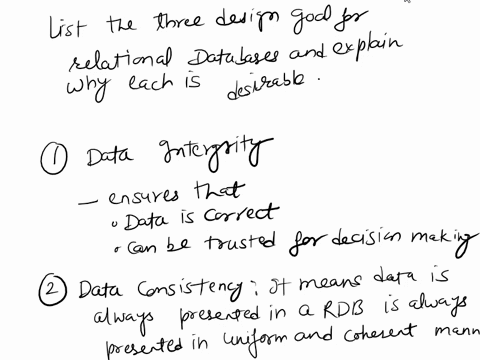 List the three design goal for
relational Databases and explain
why each is desirable.
① Data Intergrity
— ensures that
• Data is correct
• Can be trusted for decision making
② Data Consistency: It means data is
always presented in a RDB is always
presented in uniform and coherent mann